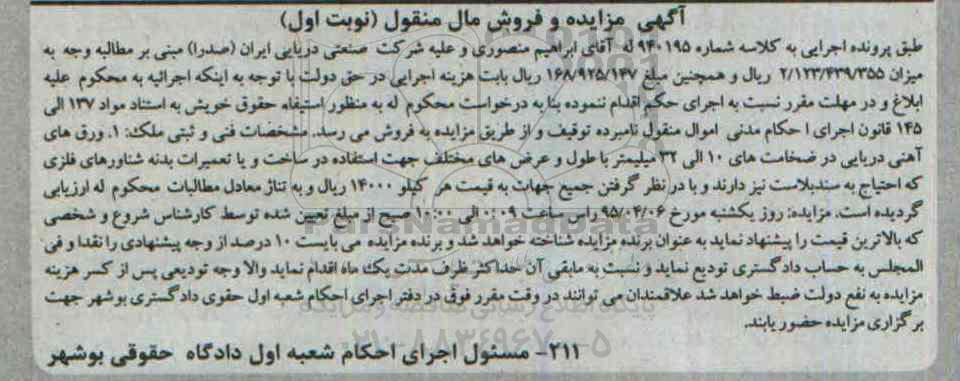 آگهی مزایده و فروش مال منقول (نوبت اول)
طبق پرونده اجرایی به کلاسه شماره ۹۴۰۱۹۵ له آقای ابراهیم منصوری و علیه شرکت صنعتی دریایی ایران (صدرا) مبنی بر مطالبه وجه به
میزان ۲/۱۲۳/۴۳۹/۳۵۵ ریال و همچنین مبلغ ۱۶۸/۹۲۵/۱۴۷ ریال بابت هزینه اجرایی در حق دولت با توجه به اینکه اجرائیه به محکوم علیه
ابلاغ و در مهلت مقرر نسبت به اجرای حکم اقدام ننموده بنا به درخواست محکوم له به منظور استیفاء حقوق خویش به استناد مواد ۱۳۷ الی
۱۴۵ قانون اجرای احکام مدنی اموال منقول نامبرده توقیف و از طریق مزایده به فروش می رسد. مشخصات فنی و ثبتی ملک: ۱. ورق های
آهنی دریایی در ضخامت های ۱۰ الی ۳۲ میلیمتر با طول و عرض های مختلف جهت استفاده در ساخت و یا تعمیرات بدنه شناورهای فلزی
که احتیاج به سندبلاست نیز دارند و با در نظر گرفتن جمیع جهات به قیمت هر کیلو ۱۴۰۰۰ ریال و به تناژ معادل مطالبات محکوم له ارزیابی
گردیده است. مزایده: روز یکشنبه مورخ ۹۵/۰۴/۰۶ راس ساعت ۰:۰۹ الی ۱۰:۰۰ صبح از مبلغ تعیین شده توسط کارشناس شروع و شخصی
که بالاترین قیمت را پیشنهاد نماید به عنوان برنده مزایده شناخته خواهد شد و برنده مزایده می بایست ۱۰ درصد از وجه پیشنهادی را نقدا و فی
المجلس به حساب دادگستری تودیع نماید و نسبت به مابقی آن حداکثر ظرف مدت یک ماه اقدام نماید والا وجه تودیعی پس از کسر هزینه
مزایده به نفع دولت ضبط خواهد شد علاقمندان می توانند در وقت مقرر فوق در دفتر اجرای احکام شعبه اول حقوی دادگستری بوشهر جهت
برگزاری مزایده حضور یابند.
۲۱۱- مسئول اجرای احکام شعبه اول دادگاه حقوقی بوشهر
ParsNamadData
پایگاه اطلاع رسانی مناقصه و مزایده
۰۲۱-۸۸۳۴۹۶۷۰-۵